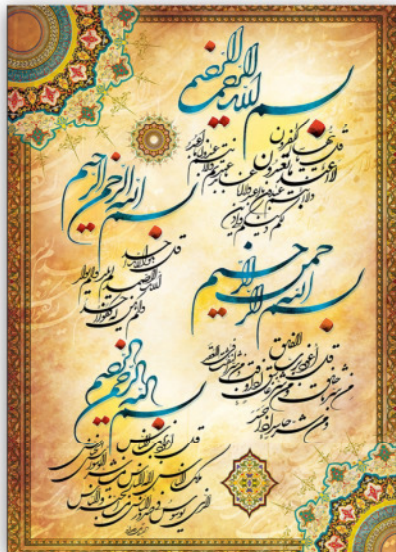 بسم الله الرحمن الرحیم
قل یا ایها الکفرون
لا اعبد ما تعبدون
ولا انتم عبدون ما اعبد
ولا انا عابد ما عبدتم
ولا انتم عبدون ما اعبد
لکم دینکم ولی دین
بسم الله الرحمن الرحیم
قل هو الله احد
الله الصمد لم یلد ولم یولد
ولم یکن له کفوا احد
بسم الله الرحمن الرحیم
قل اعوذ برب الفلق
من شر ما خلق و من شر غاسق اذا وقب و من شر النفثت فی العقد
و من شر حاسد اذا حسد
بسم الله الرحمن الرحیم
قل اعوذ برب الناس
ملک الناس اله الناس من شر الوسواس الخناس
الذی یوسوس فی صدور الناس من الجنة و الناس